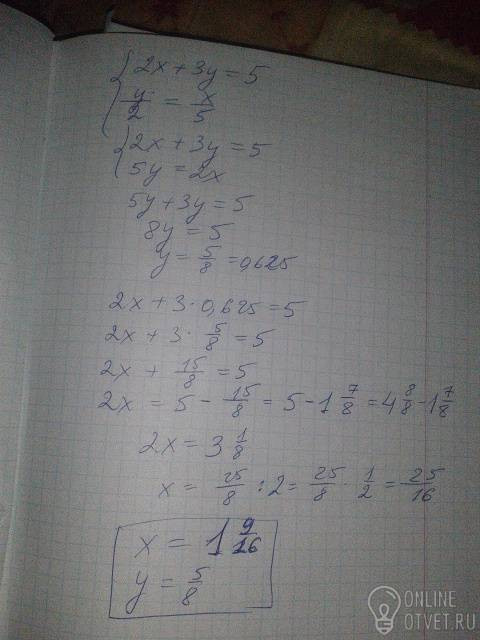 2x + 3y = 5
y/2 = x/5
2x + 3y = 5
5y = 2x
5y + 3y = 5
8y = 5
y = 5/8 = 0,625
2x + 3 · 0,625 = 5
2x + 3 · 5/8 = 5
2x + 15/8 = 5
2x = 5 - 15/8 = 5 - 1 7/8 = 4 8/8 - 1 7/8
2x = 3 1/8
x = 25/8 : 2 = 25/8 · 1/2 = 25/16
x = 1 9/16
y = 5/8
ONLINE
OTVET.RU